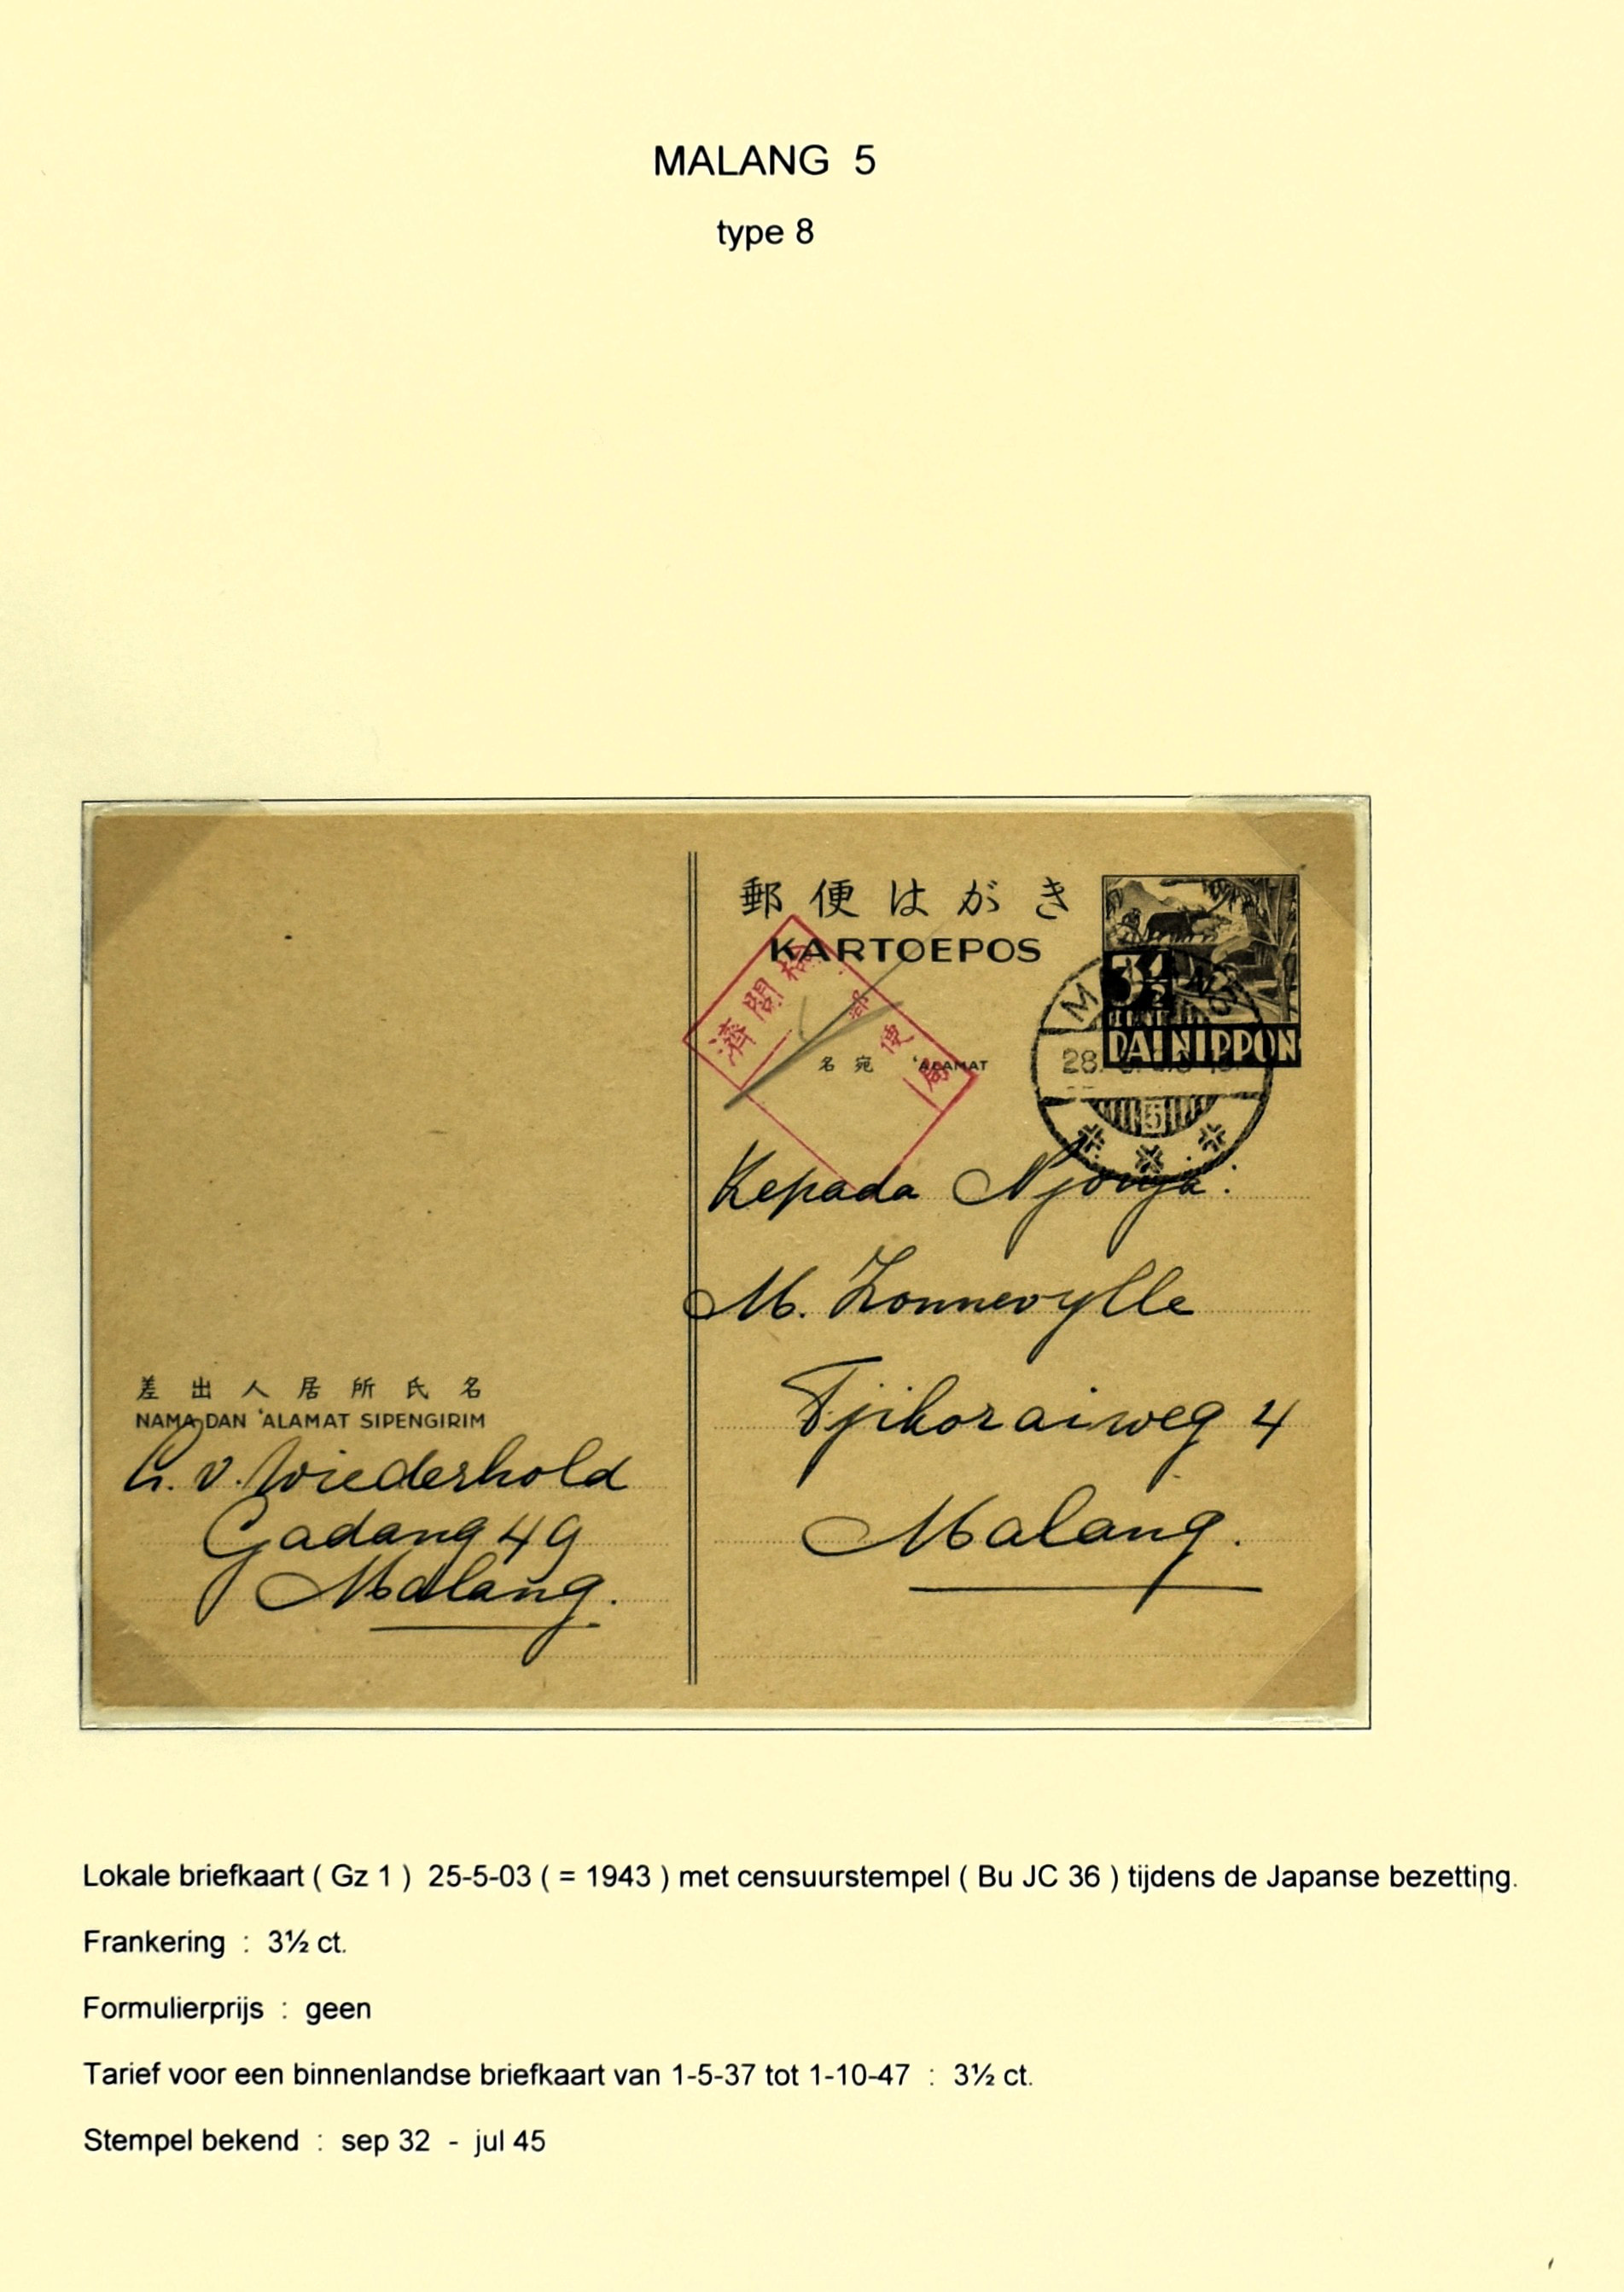 MALANG 5
type 8
郵便はがき
KARTOEPOS
3½
DAI NIPPON
検閲済
郵便局
名宛 'ALAMAT
28.
5
Kepada Njonja:
M. Zonnevylle
Tjikoraiweg 4
Malang.
差出人居所氏名
NAMA DAN 'ALAMAT SIPENGIRIM
v. Wiederhold
Gadang 49
Malang.
Lokale briefkaart ( Gz 1 ) 25-5-03 ( = 1943 ) met censuurstempel ( Bu JC 36 ) tijdens de Japanse bezetting.
Frankering : 3½ ct.
Formulierprijs : geen
Tarief voor een binnenlandse briefkaart van 1-5-37 tot 1-10-47 : 3½ ct.
Stempel bekend : sep 32 - jul 45